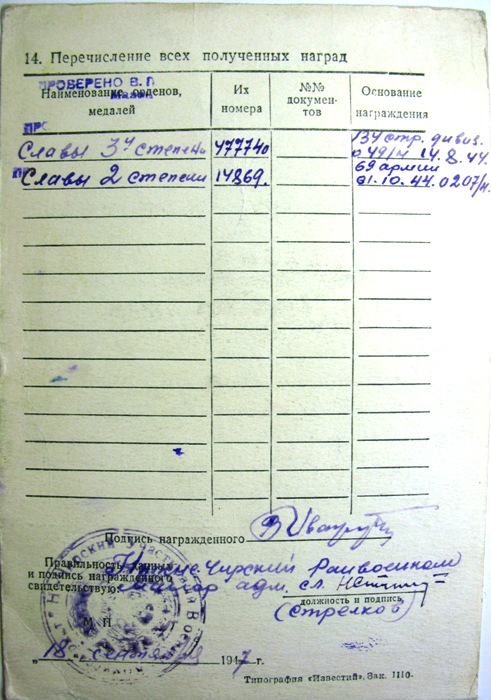 14. Перечисление всех полученных наград
ПРОВЕРЕНО В. Г.
Наименование орденов, медалей
Их номера
№№ докумен-тов
Основание награждения
Славы 3й степени 477740 134 стр. дивиз.
049/н 14.8.44.
Славы 2 степени 14869. 69 армии
31.10.44. 0207/н.
Подпись награжденного
Правильность данных
и подпись награжденного
свидетельствую:
Нижне-Чирский Райвоенком
майор адм. сл.
должность и подпись,
(Стрелков)
М П
„18 сентября 1947 г.
Типография «Известий». Зак. 1110.